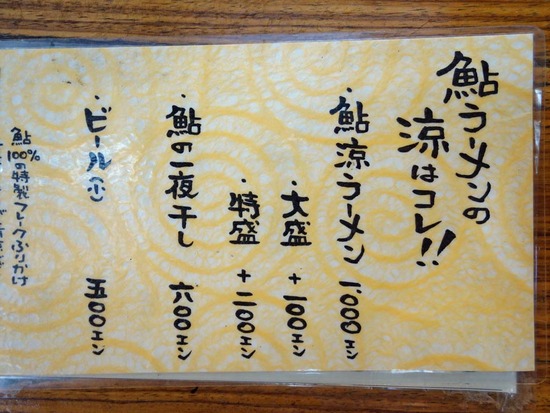 鮎ラーメンの
涼はコレ!!
・鮎涼ラーメン 1,000エン
・大盛 +一〇〇エン
・特盛 +二〇〇エン
・鮎の一夜干し 六〇〇エン
・ビール(小) 五〇〇エン
鮎100%の特製フレークふりかけ